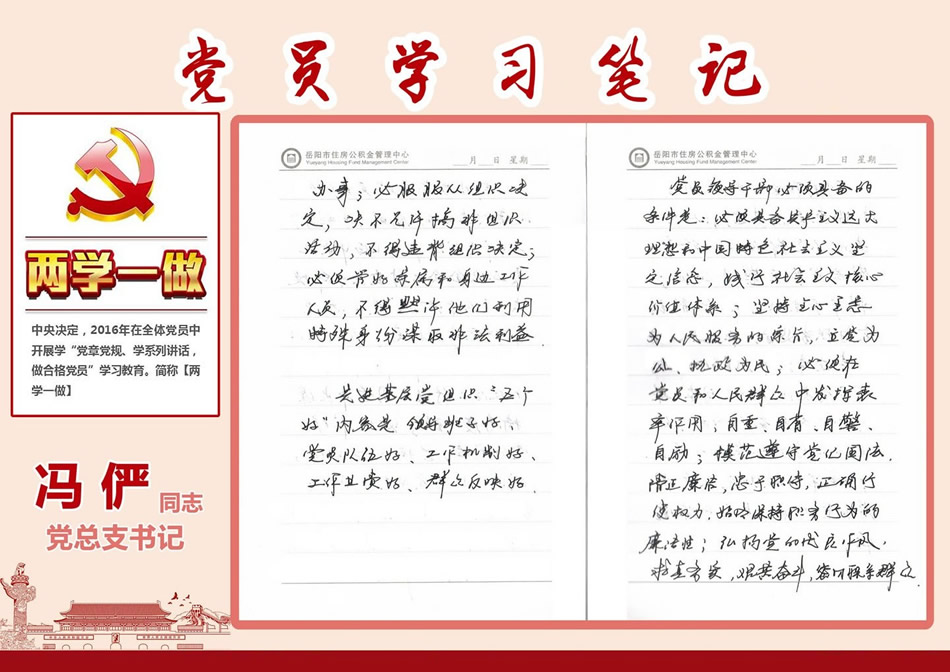 党员学习笔记
两学一做
中央决定，2016年在全体党员中
开展学“党章党规、学系列讲话，
做合格党员”学习教育。简称【两
学一做】
冯俨 同志
党总支书记
岳阳市住房公积金管理中心
Yueyang Housing Fund Management Center
月 日 星期
办事；必服服从组织决
定，决不允许搞非组织
活动，不得违背组织决定；
必须管好亲属和身边工作
人员，不得默许他们利用
特殊身份谋取非法利益
先进基层党组织“五个
好”内容是 领导班子好、
党员队伍好、工作机制好、
工作业绩好、群众反映好.
岳阳市住房公积金管理中心
Yueyang Housing Fund Management Center
月 日 星期
党员领导干部必须具备的
条件是：必须具备共产主义远大
理想和中国特色社会主义坚
定信念，践行社会主义核心
价值体系；坚持全心全意
为人民服务的宗旨，立党为
公、执政为民；必须在
党员和人民群众中发挥表
率作用，自重、自省、自警、
自励；模范遵守党纪国法.
清正廉洁，忠于职守，正确行
使权力，始终保持职务行为的
廉洁性；弘扬党的优良作风，
求真务实，艰苦奋斗，密切联系群众.